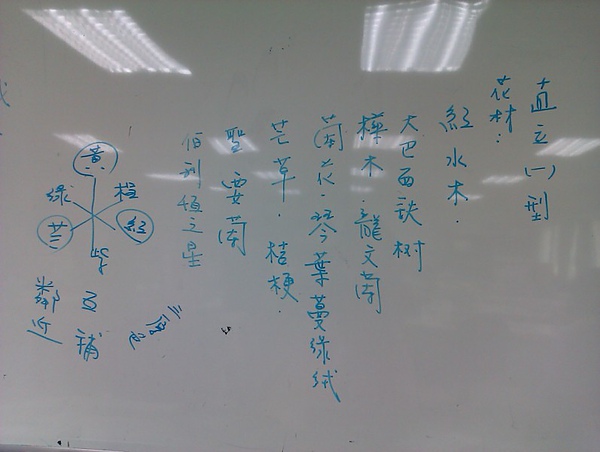 直立(一)型
花材:
紅水木.
大巴西鉄树
樺木.龍文蘭
蘭花.琴葉蔓綠絨
芒草.桔梗.
伯利恆之星
黃
綠 橙
紅
紫
互補
鄰近
三原色